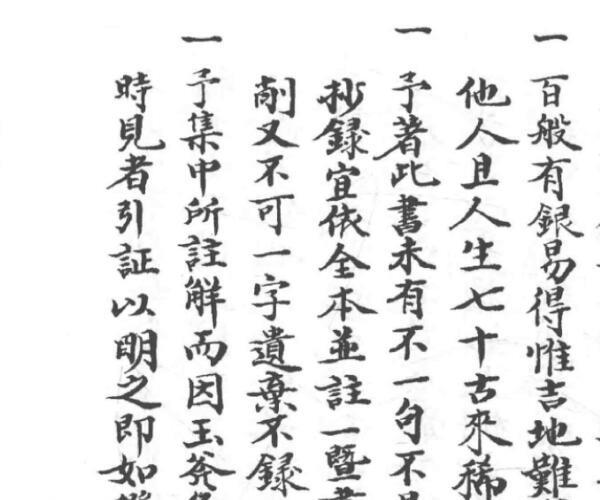 一百般有銀易得惟吉地難
他人且人生七十古來稀
一予著此書未有不一句不
抄錄宜依全本並註一暨
刪又不可一字遺棄不録
一予集中所註解而因玉
時見者引証以明之即如